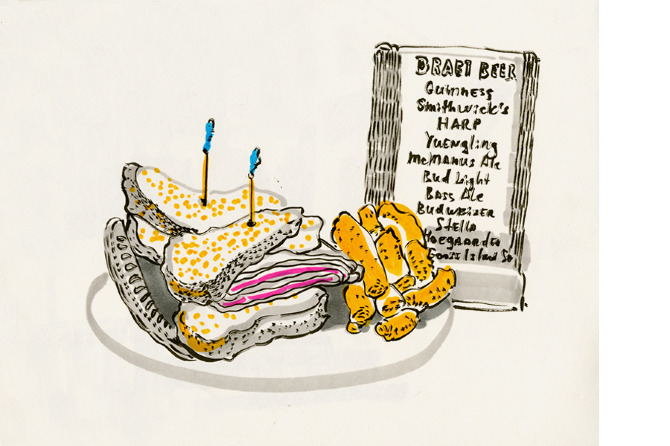 DRAFT BEER
Guinness
Smithwick's
HARP
Yuengling
McManus Ale
Bud Light
Bass Ale
Budweiser
Stella
Hoegaarden
Goose Island So